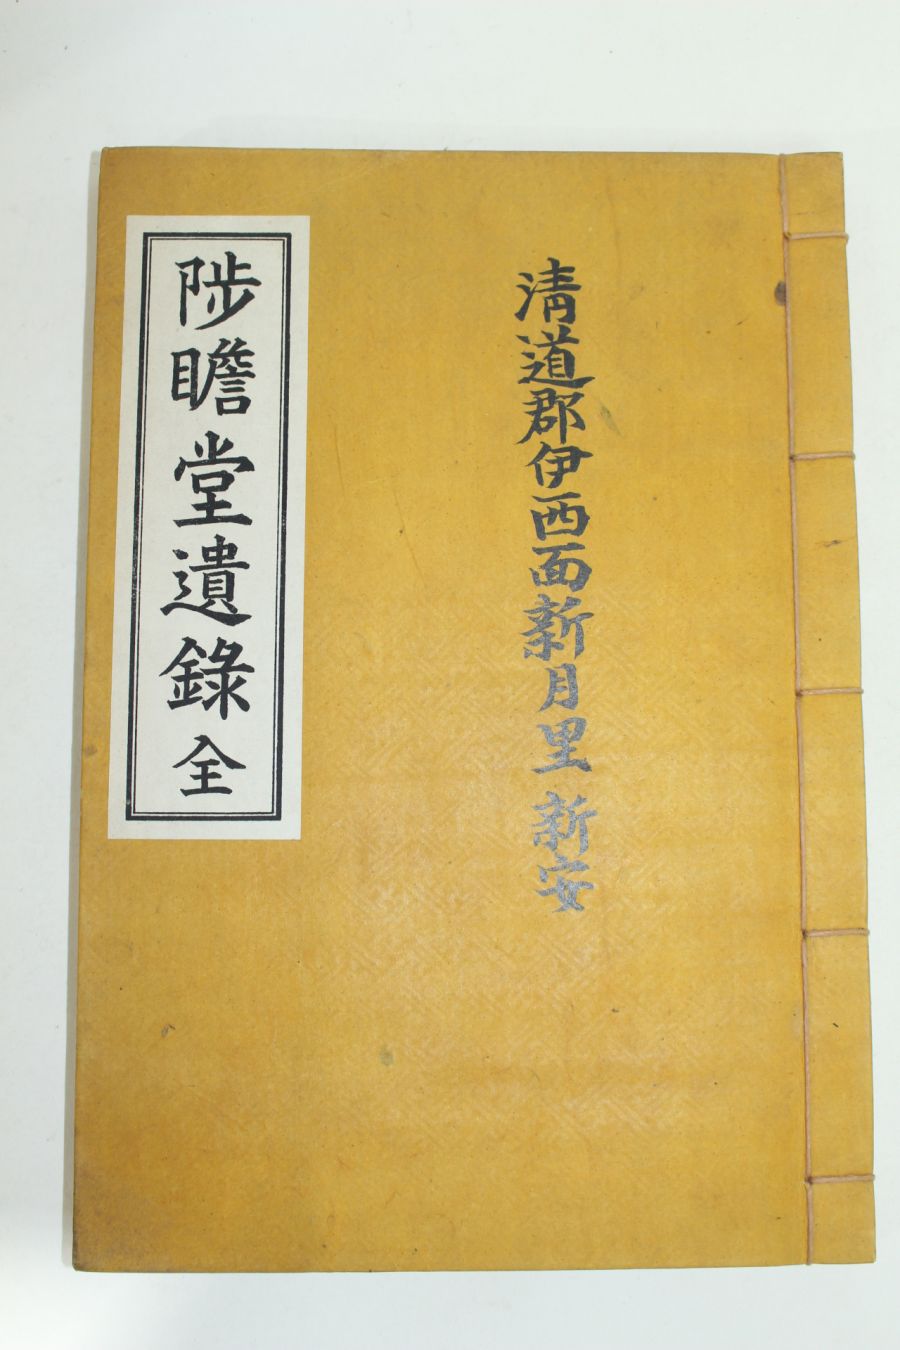 淸道郡伊西面新月里 新安
陟瞻堂遺錄 全